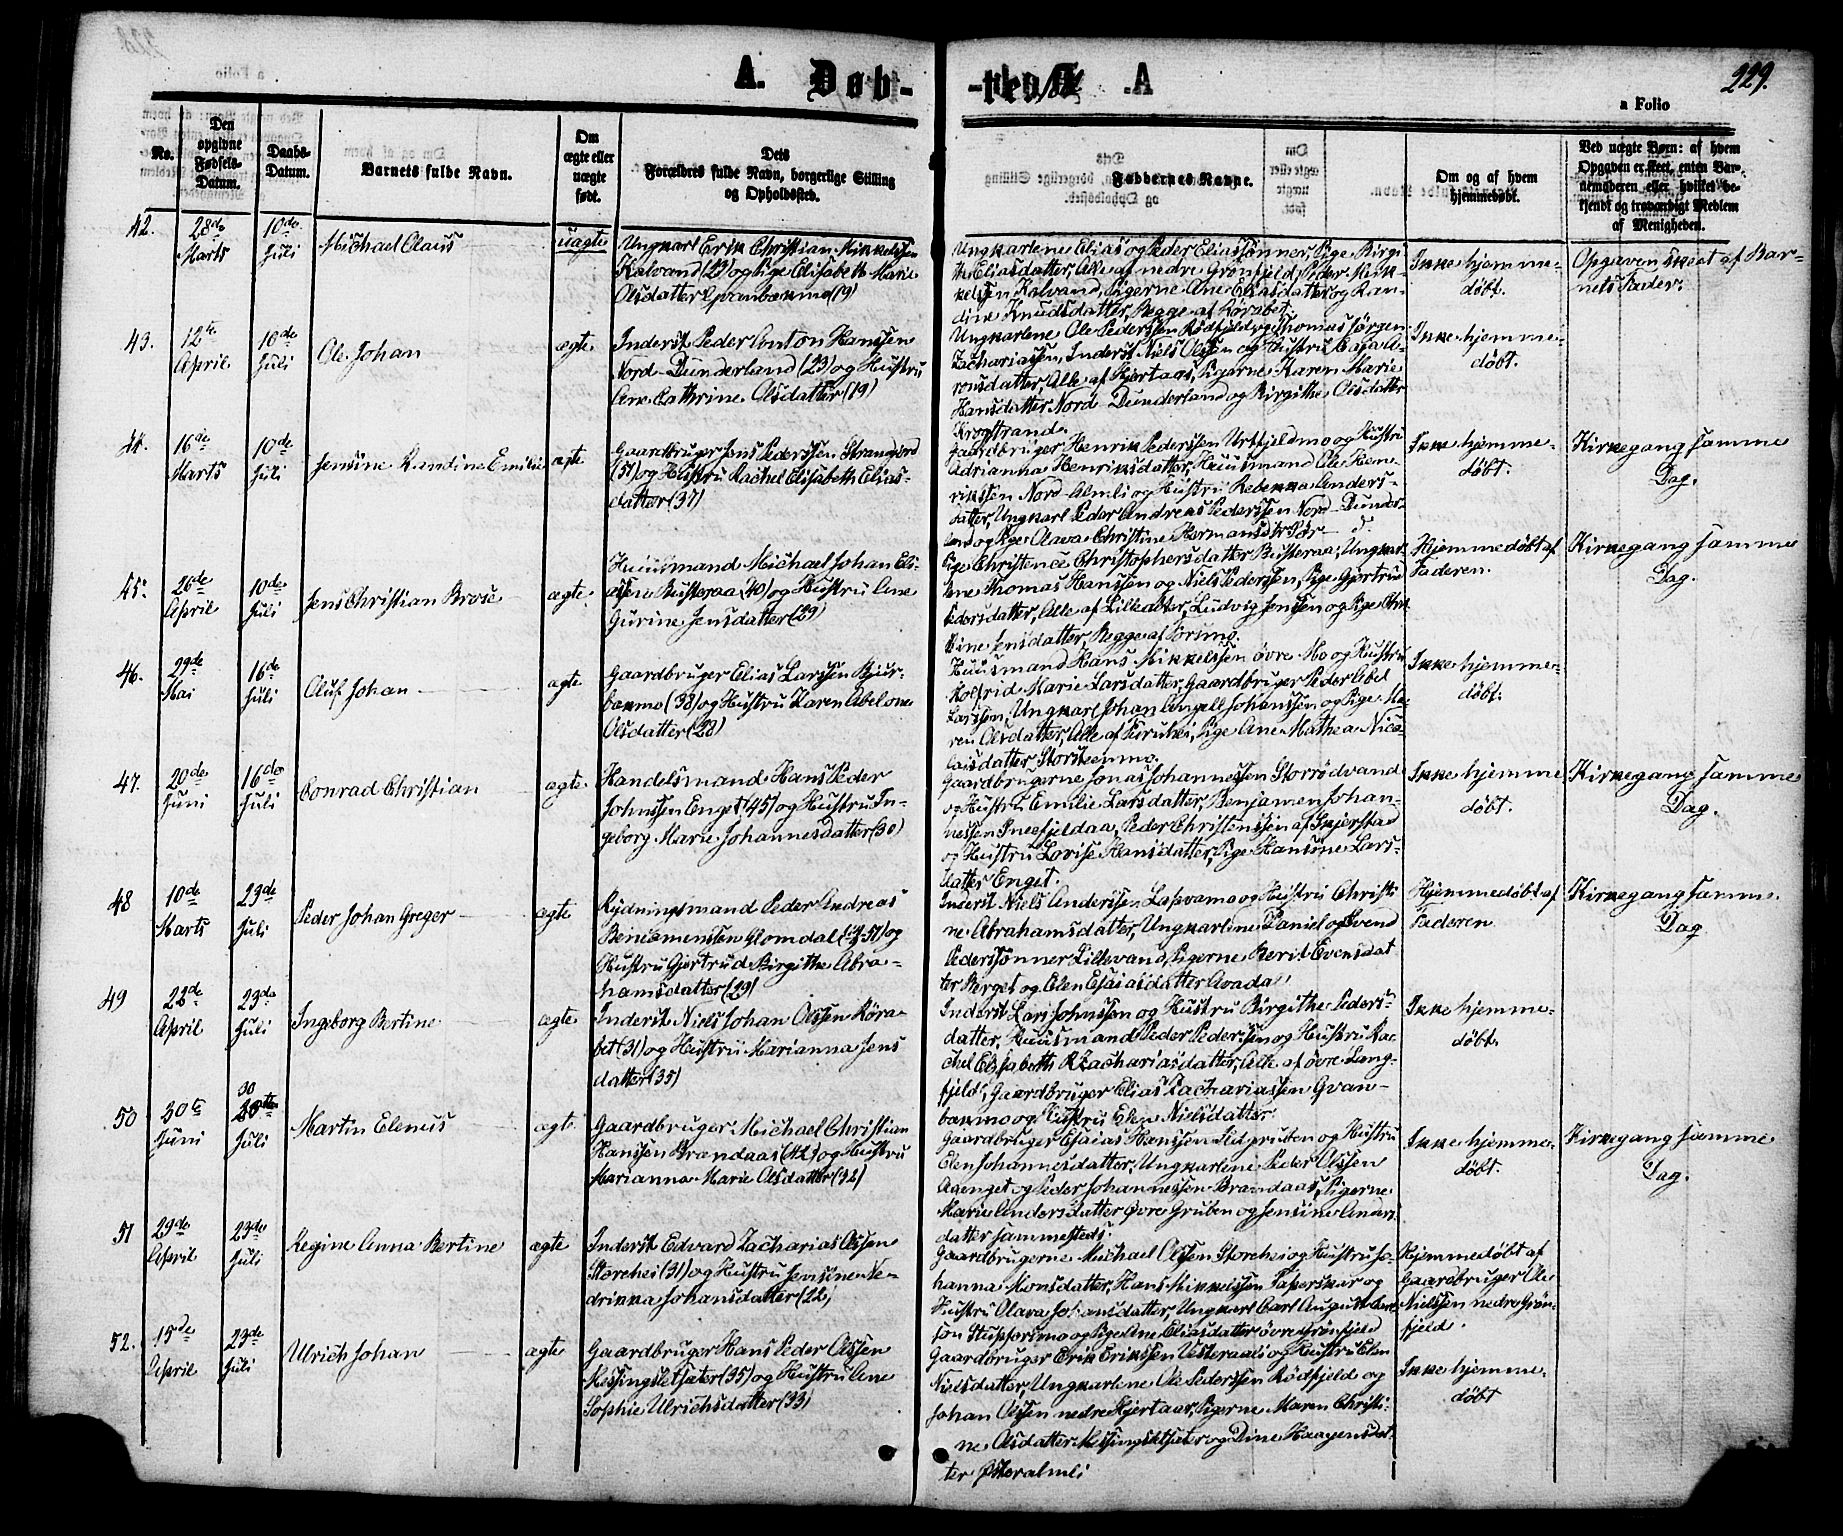 A. Døb-
-te.
229.
a Folio
No.
Den opgivne Fødsels-Datum.
Daabs-Datum.
Barnets fulde Navn.
Om ægte eller uægte født.
Dets Forældres fulde Navn, borgerlige Stilling og Opholdssted.
Faddernes Navne.
Om og af hvem hjemmedøbt.
Ved uægte Børn: af hvem Opgaven er skeet, enten Barnemoderen eller hvilket bekjendt og troværdigt Medlem af Menigheden.
42.
28de Marts
10de Juli
Michael Olaus
uægte
Ungkarl Erik Christian Mikkelsen
Kalvand (23) og Pige Elisabeth Marie
Olsdatter Gvanbækmo (19)
Ungkarlene Elias og Peder Eliassønner, Pige Birgi-
th Eliasdatter, Alle af nedre Grønfjeld, Peder Mik-
kelsen Kalvand, Pigerne Ane Eliasdatter og Ran-
dine Knudsdatter, Begge af Rørabet.
Ikke hjemme-
døbt.
Opgaven skeet af Bar-
nets Fader.
43.
12te April
10de Juli
Ole Johan
ægte
Inderst Peder Conton Hanssen
Nord-Dunderland (23) og Hustru
Ane Cathrine Olsdatter (19)
Ungkarlene Ole Pederssen Rødfjeld og Thomas Jørgen
Zachariassen, Inderst Niels Olssen og Hustru
ronsdatter, Alle af Hjertaas, Pigerne Karen Marie
Hansdatter Nord-Dunderland og Birgithe Olsdatter
Krogstrand.
Ikke hjemme-
døbt.
44.
16de Marts
10de Juli
Jensine Randine Emilie
ægte
Gaardbruger Jens Pederssen Strandjord
(51) og Hustru Rachel Elisabeth Elias-
datter (37)
Gaardbruger Henrik Pederssen Urtfjeldmo og Hustru
Adrianna Henriksdatter, Huusmand Ole Hen-
rikssen Nord-Almli og Hustru Rebekka Anders-
datter, Ungkarl Peder Andreas Pederssen Nord-Dunder-
land og Pige Olava Christine Hermansdtr
Ikke hjemme-
døbt.
Kirkegang samme
Dag.
45.
26de April
10de Juli
Jens Christian Brose
ægte
Huusmand Michael Johan Eli-
assen Busteraa (40) og Hustru Ane
Gurine Jensdatter (29)
Pige Christence Christophersdatter Busteraa, Ungkar-
lene Thomas Hanssen og Niels Pederssen, Pige Gjertrud
Pedersdatter, Alle af Lilleælter, Ludvig Jenssen og Pige
Jensdatter, Begge af Tørsmo.
Hjemmedøbt af
Faderen.
Kirkegang samme
Dag.
46.
29de Mai
16de Juli
Oluf Johan
ægte
Gaardbruger Elias Larssen Bjur-
bækmo (33) og Hustru Karen Abelone
Olsdatter (28)
Huusmand Hans Mikkelssen øvre Mo og Hustru
Marie Larsdatter, Gaardbruger Peder Abel
Larssen, Ungkarl Johan Angell Johanssen og Pige Ma-
ren Olsdatter, Alle af Furuhei, Pige Ane Mathea Nico-
laisdatter Storsteenmo.
Ikke hjemme-
døbt.
47.
20de Juni
16de Juli
Conrad Christian
ægte
Handelsmand Hans Peder
Johnssen Enget (45) og Hustru In-
geborg Marie Johannesdatter (30)
Gaardbrugerne Jonas Johannessen Storrødvand
og Hustru Emilie Larsdatter, Benjamen Johan-
nessen Sneefjeldaa, Peder Christenssen af Skjerstad
og Hustru Lovise Hansdatter, Pige Hansine Lars-
datter Enget.
Ikke hjemme
døbt.
Kirkegang samme
Dag.
48
10de Marts
23de Juli
Peder Johan Greger
ægte
Rydningsmand Peder Andreas
Glomdal og
Hustru Gjertrud Birgithe Abra-
hamsdatter (29)
Inderst Niels Anderssen og Hustru Christi-
ne Abrahamsdatter, Ungkarlene Daniel og Svend
Pederssønner Lillevand, Pigerne Berit Evensdat-
ter Berget og Elen Esaiasdatter Avada
Hjemmedøbt af
Faderen
Kirkegang samme
Dag
49
22de April
23de Juli
Ingeborg Bertine
ægte
Inderst Niels Johan Olssen Røra-
bet (31) og Hustru Marianna Jens
datter (35)
Inderst Lars Johnssen og Hustru Birgithe Peders-
datter, Huusmand Peder Pederssen og Hustru Ra-
chel Elisabeth Zachariasdatter, Alle af øvre Lang-
fjeld, Gaardbruger Elias Zachariassen Gvan-
bækmo og Hustru Elen Nielsdatter.
Ikke hjemme-
døbt.
50
30te Juni
30 Juli
Martin Elenus
ægte
Gaardbruger Michael Christian
Hanssen Brændaas (42) og Hustru
Marianna Marie Olsdatter (32)
Gaardbruger Esaias Hanssen og Hustru
Elen Johannesdatter, Ungkarlene Peder Olssen
Aaenget og Peder Johannessen Brændaas, Pigerne
Marie Andersdatter Øvre Gruben og Jensine
datter sammesteds.
Ikke hjemme-
døbt.
Kirkegang samme
Dag.
51
29de April
23de Juli
Regine Anna Bertine
ægte
Inderst Edvard Zacharias Olssen
Storehei (31) og Hustru Jensine
Johansdatter (22)
Gaardbrugerne Michael Olssen Storehei og Hustru Jo-
hanna Monsdatter, Hans Mikkelssen og
Hustru Olava Johansdatter, Ungkarl Carl August
Stupforsmo og Pige Ane Eliasdatter øvre Grønfjeld
Hjemmedøbt af
Gaardbruger Ole
Nielssen nedre Grøn-
fjeld.
52.
15de April
23de Juli
Ulrich Johan
ægte
Gaardbruger Hans Peder Olssen
Messingsletsæter (35) og Hustru Ane
Sophie Ulrichsdatter (33)
Gaardbruger Erik Erikssen Vesteraali og Hustru Elen
Nielsdatter, Ungkarlene Ole Pederssen Rødfjeld og
Johan Olssen nedre Hjertaas, Pigerne Maren Christi-
ne Olsdatter Messingsletsæter og Dine Haagensdat-
ter Østeralmli
Ikke hjemme-
døbt